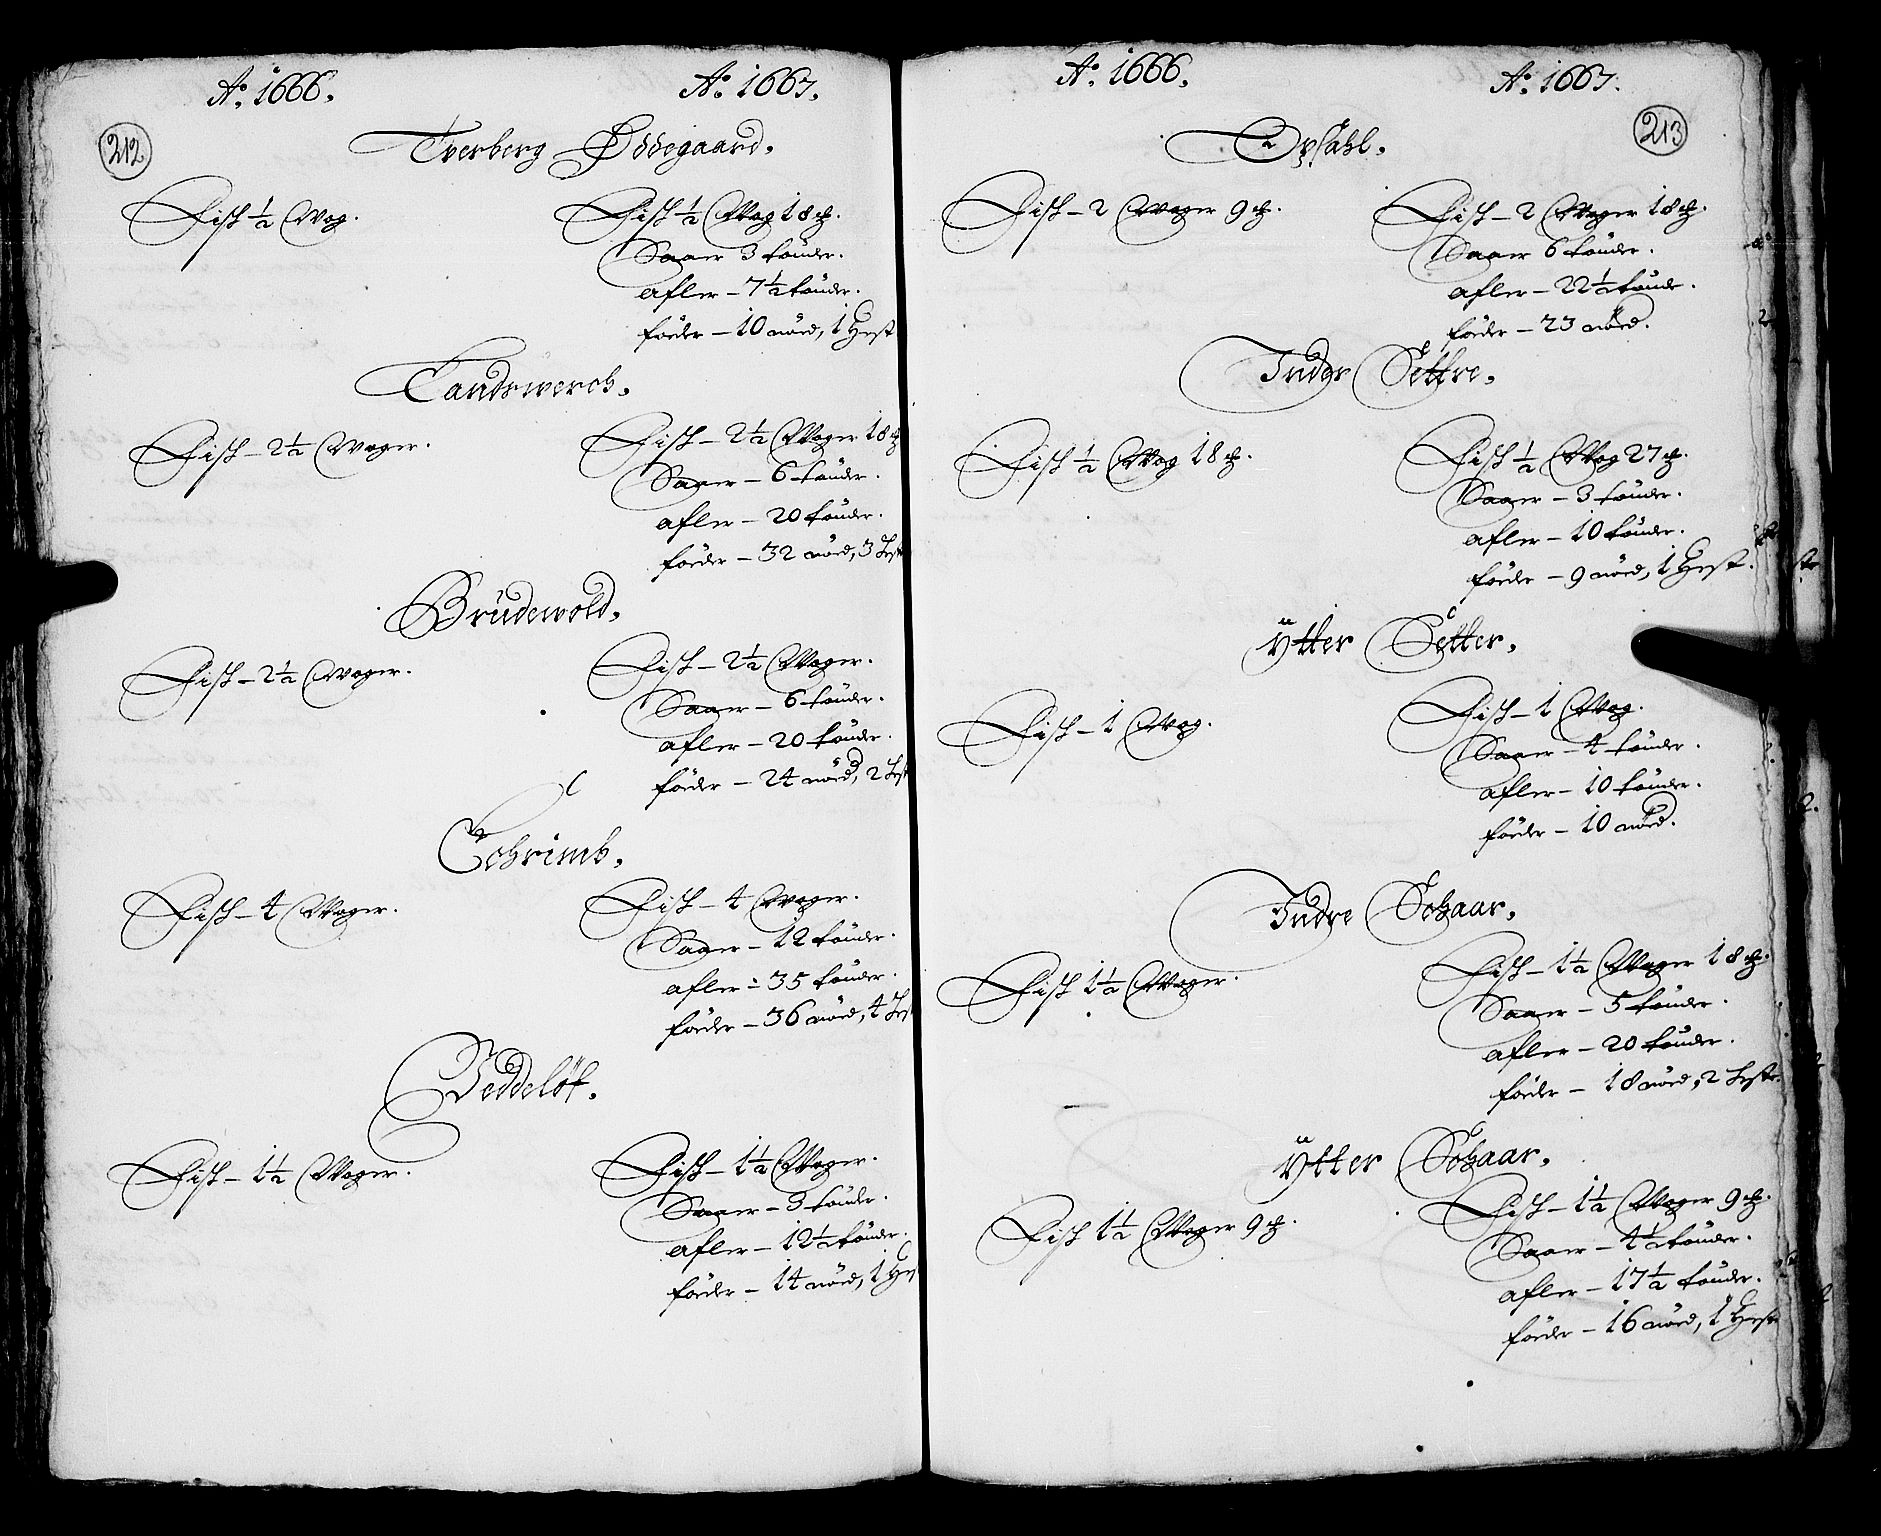 Aº. 1666. Aº. 1667.
212
Tverberg Ødegaard.
Fisk ½ Wog. Fisk ½ Wog 18 ℔.
Saaer 3 tønder.
afler – 7½ tønder.
føder – 10 nøed, 1 Hest
Tandrwerch.
Fisk – 2½ Woger. Fisk – 2½ Woger 18 ℔
Saaer – 6 tønder.
afler – 20 tønder.
føder – 32 nøed, 3 Hest
Brudewold.
Fisk – 2½ Woger. Fisk – 2½ Woger.
Saaer – 6 tønder.
afler – 20 tønder.
føder – 24 nøed, 2 Hest
Schrimb.
Fisk – 4 Woger. Fisk – 4 Woger.
Saaer – 12 tønder.
afler – 35 tønder.
føder – 36 nøed, 4 Hest
Veddeløf.
Fisk – 1½ Woger. Fisk – 1½ Woger.
Saaer – 3 tønder.
afler – 12½ tønder.
føder – 14 nøed, 1 Hes
Aº. 1666. Aº. 1667.
213
Opsahl.
Fisk – 2 Woger 9 ℔. Fisk – 2 Woger 18 ℔.
Saaer 6 tønder.
afler – 22½ tønder.
føder – 23 nøed.
Inder Settre.
Fisk ½ Wog 18 ℔. Fisk ½ Wog 27 ℔.
Saaer – 3 tønder.
afler – 10 tønder.
føder – 9 nøed, 1 Hest.
Ytter Setter.
Fisk – 1 Wog. Fisk – 1 Wog.
Saaer – 4 tønder.
afler – 10 tønder.
føder – 10 nøed.
Indre Schaar.
Fisk 1½ Woger. Fisk – 1½ Woger 18 ℔.
Saaer – 5 tønder.
afler – 20 tønder.
føder – 18 nøed, 2 Heste.
Ytter Schaar.
Fisk 1½ Woger 9 ℔. Fisk – 1½ Woger 9 ℔.
Saaer – 4½ tønder.
afler – 17½ tønder.
føder – 16 nøed, 1 Hest